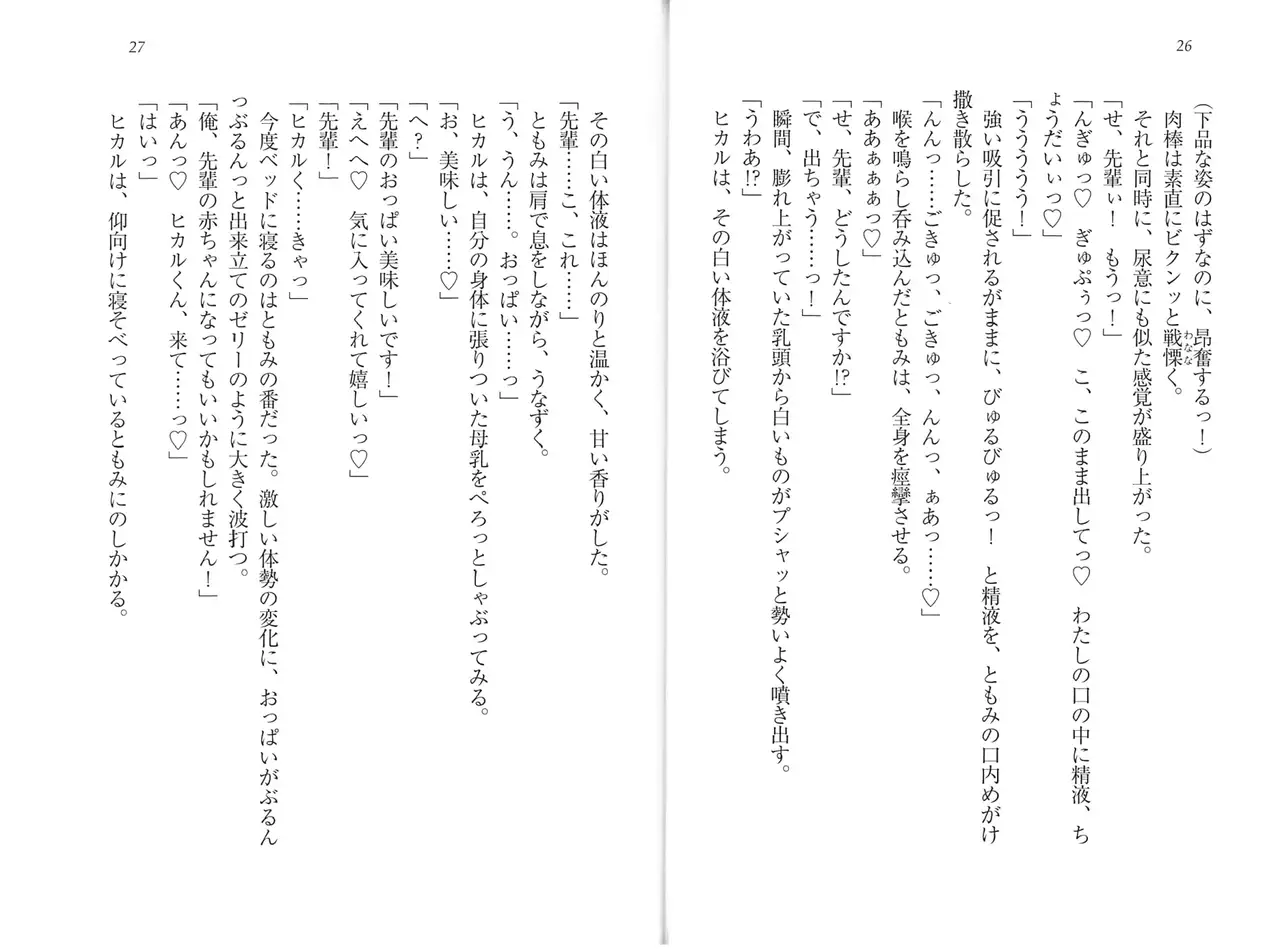 26
(下品な姿のはずなのに、昂奮するっ！)
肉棒は素直にビクンッと戦慄く。
わなな
それと同時に、尿意にも似た感覚が盛り上がった。
「せ、先輩ぃ！　もうっ！」
「んぎゅっ♡　ぎゅぷぅっ♡　こ、このまま出してっ♡　わたしの口の中に精液、ち
ょうだいぃっ♡」
「うううう！」
強い吸引に促されるがままに、びゅるびゅるっ！　と精液を、ともみの口内めがけ
撒き散らした。
「んんっ……ごきゅっ、ごきゅっ、んんっ、ぁあっ……♡」
喉を鳴らし呑み込んだともみは、全身を痙攣させる。
「ああぁぁぁっ♡」
「せ、先輩、どうしたんですか!?」
「で、出ちゃう……っ！」
瞬間、膨れ上がっていた乳頭から白いものがプシャッと勢いよく噴き出す。
「うわあ!?」
ヒカルは、その白い体液を浴びてしまう。
27
その白い体液はほんのりと温かく、甘い香りがした。
「先輩……こ、これ……」
ともみは肩で息をしながら、うなずく。
「う、うん……。おっぱい……っ」
ヒカルは、自分の身体に張りついた母乳をぺろっとしゃぶってみる。
「お、美味しい……♡」
「へ？」
「先輩のおっぱい美味しいです！」
「えへへ♡　気に入ってくれて嬉しいっ♡」
「先輩！」
「ヒカルく……きゃっ」
今度ベッドに寝るのはともみの番だった。激しい体勢の変化に、おっぱいがぶるん
っぶるんっと出来立てのゼリーのように大きく波打つ。
「俺、先輩の赤ちゃんになってもいいかもしれません！」
「あんっ♡　ヒカルくん、来て……っ♡」
「はいっ」
ヒカルは、仰向けに寝そべっているともみにのしかかる。